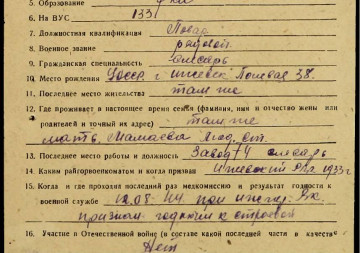 5. Образование
6. На ВУС 133
7. Должностная квалификация Повар
8. Военное звание рядовой
9. Гражданская специальность слесарь
10. Место рождения УАССР г. Ижевск Полевая 38.
11. Последнее место жительства там же
12. Где проживает в настоящее время семья (фамилия, имя и отчество жены или
родителей и точный их адрес) там же
мать, Мамаева
13. Последнее место работы и должность Завод 74 слесарь
14. Каким райгорвоенкоматом и когда призван Ижевский 1933 г.
15. Когда и где проходил последний раз медкомиссию и результат годности к
военной службе 12.08.44 при
признан годным к строевой
16. Участие в Отечественной войне (в составе какой последней части, в качестве
Нет